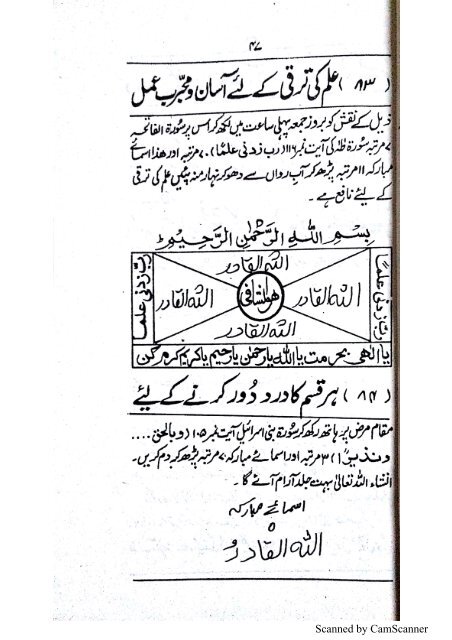 ۴۷
(۸۳) علم کی ترقی کے لئے آسان و مجرّب عمل
ذیل کے نقش کو بروز جمعہ پہلی ساعت میں لکھ کر اس پر سورۃ الفاتحہ
۷ مرتبہ سورۃ طٰہٰ کی آیت نمبر ۱۱۴ (رب زدنی علمًا) ۷۰ مرتبہ اور ھذا اسمائے
مبارکہ ۱۱ مرتبہ پڑھ کر آبِ رواں سے دھو کر نہار منہ پئیں علم کی ترقی
کے لئے نافع ہے۔
بِسْمِ اللّٰهِ الرَّحْمٰنِ الرَّحِيْمِ
اللّٰه القادر
ربّ زدنی علمًا
اللّٰه القادر
ھو الشافی
اللّٰه القادر
ربّ زدنی علمًا
اللّٰه القادر
یا الٰھی بحرمت یا اللّٰه یا رحمٰن یا رحیم یا کریم کرم کن
(۸۴) ہر قسم کا درد دُور کرنے کے لئے
مقامِ مرض پر ہاتھ رکھ کر سورۃ بنی اسرائیل آیت نمبر ۱۰۵ (و بالحق ....
ونذیرًا) ۳ مرتبہ اور اسمائے مبارکہ ۷ مرتبہ پڑھ کر دم کریں۔
انشاء اللّٰه تعالیٰ بہت جلد آرام آئے گا۔
اسمائے مبارکہ
اللّٰه القادرُ
Scanned by CamScanner